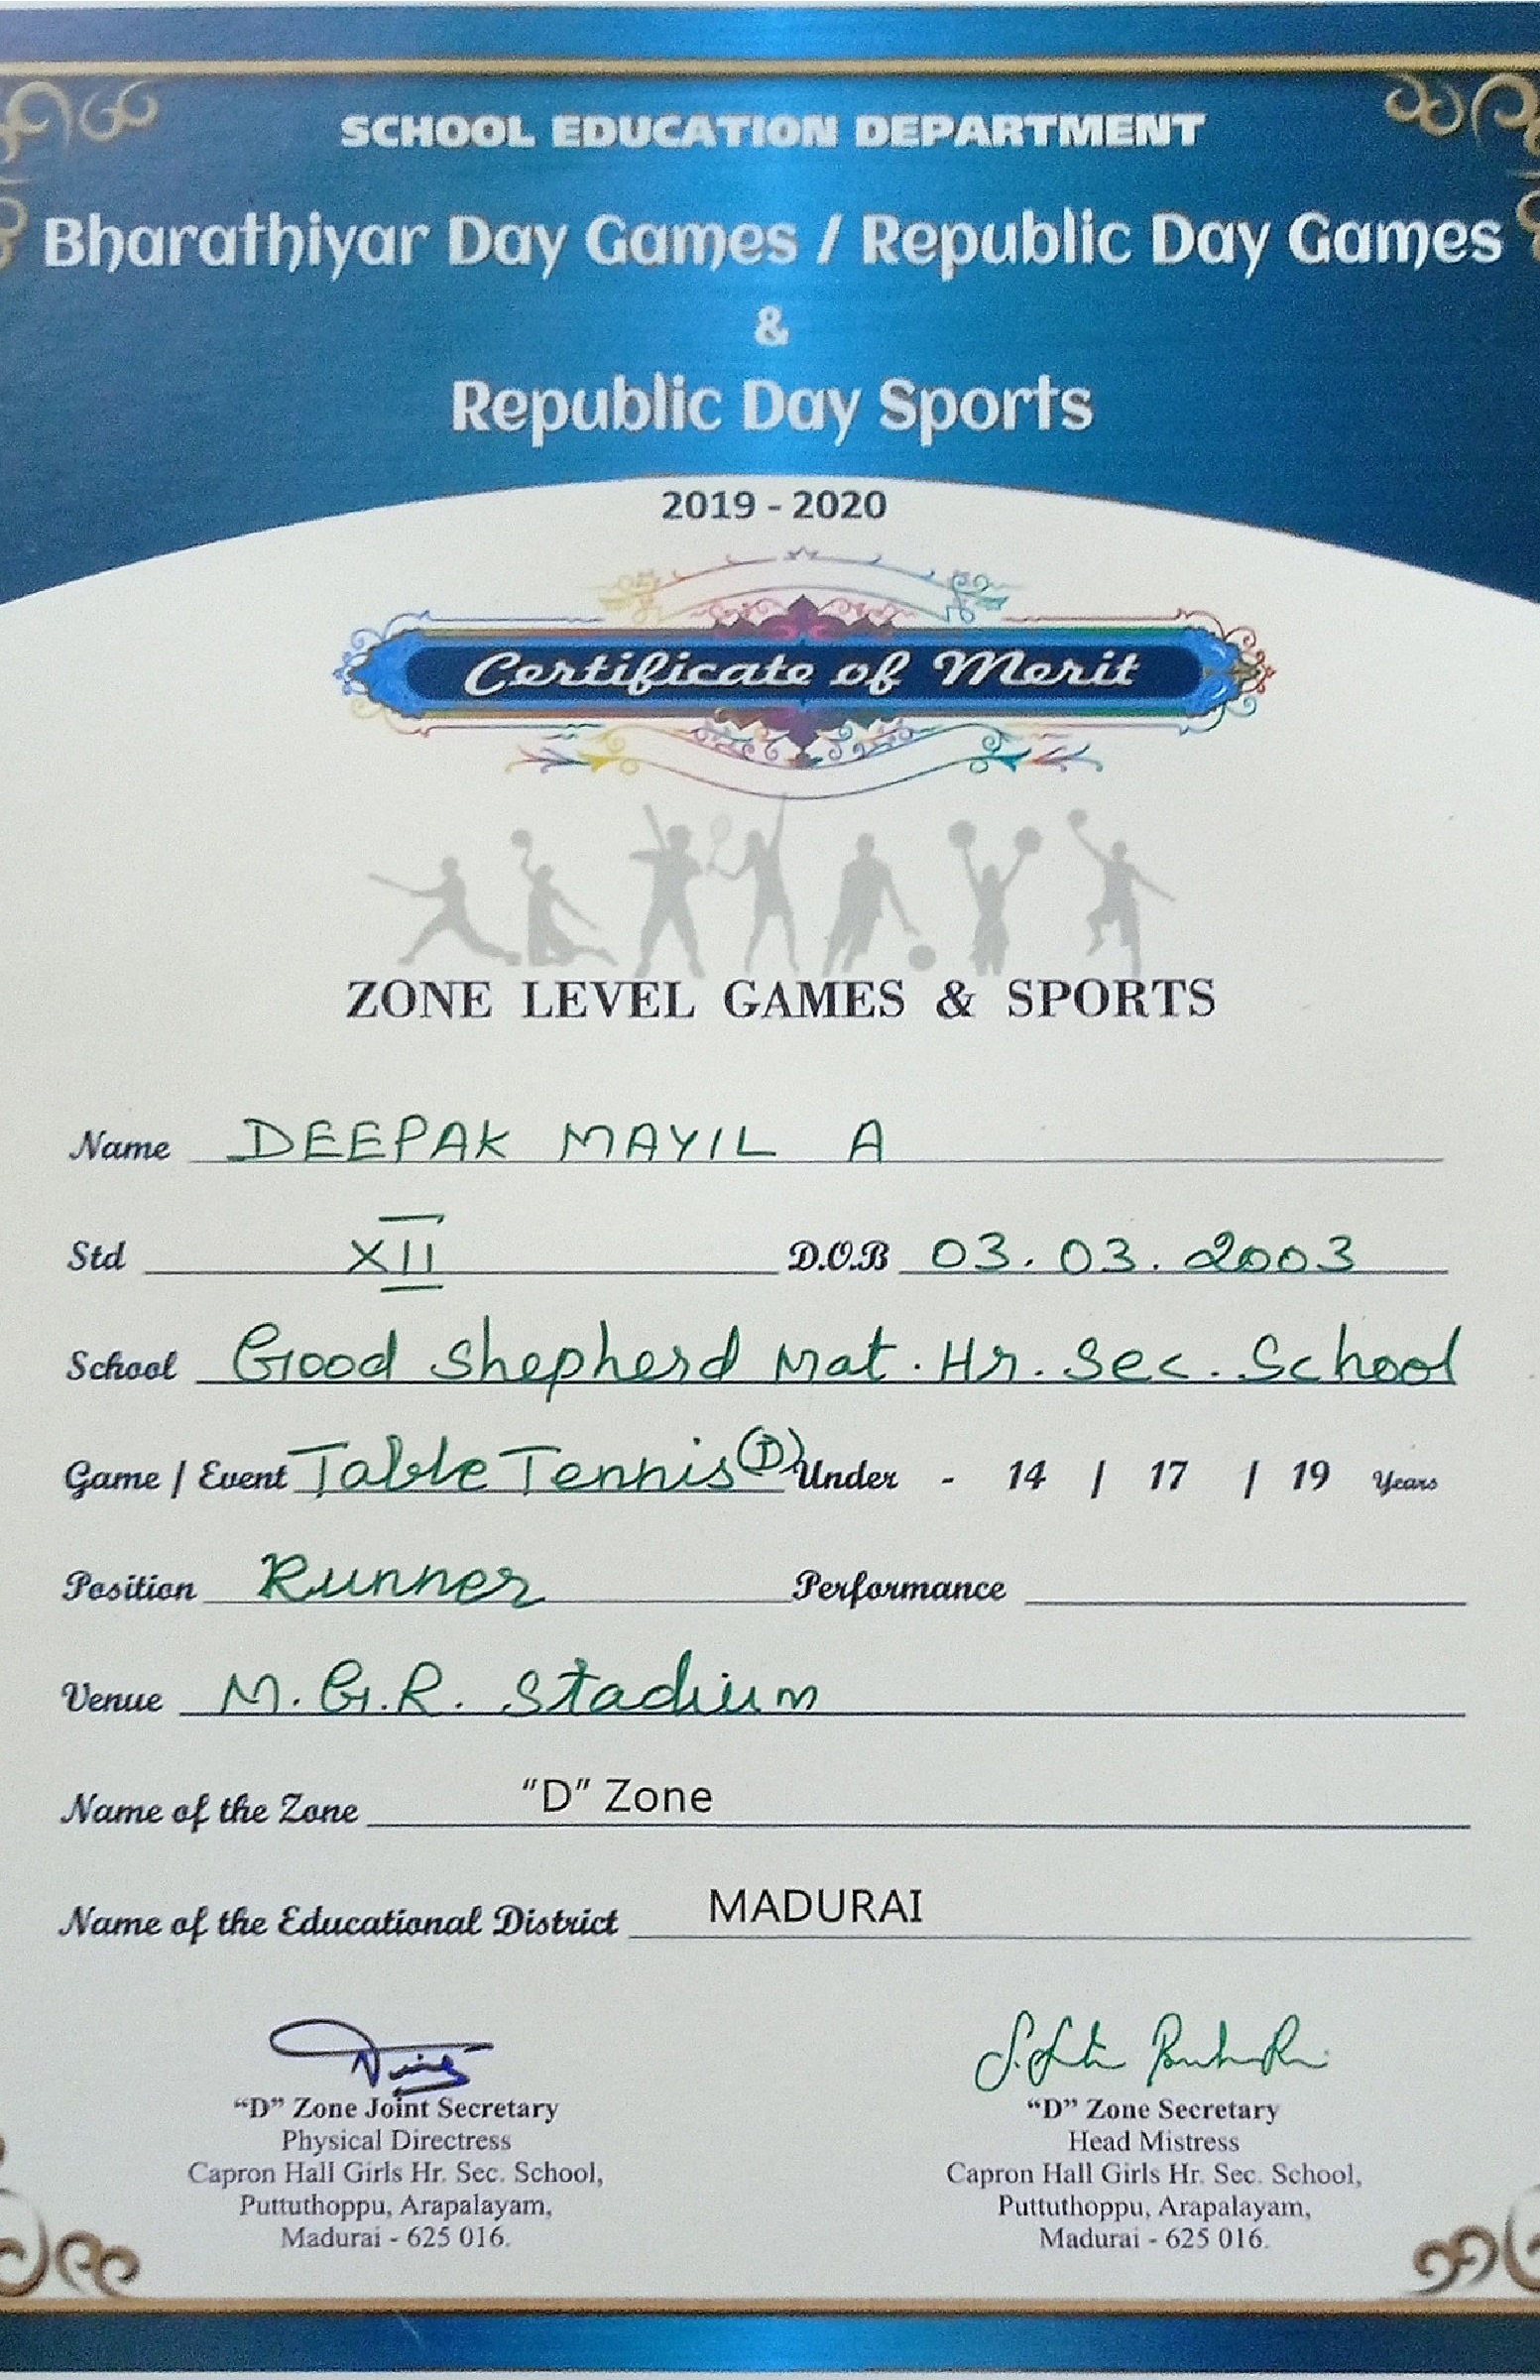 SCHOOL EDUCATION DEPARTMENT
Bharathiyar Day Games / Republic Day Games
&
Republic Day Sports
2019 - 2020
Certificate of Merit
ZONE LEVEL GAMES & SPORTS
Name DEEPAK MAYIL A
Std XII D.O.B 03.03.2003
School Good Shepherd Mat. Hr. Sec. School
Game / Event Table Tennis (D) Under - 14 / 17 / 19 Years
Position Runner Performance
Venue M.G.R. Stadium
Name of the Zone "D" Zone
Name of the Educational District MADURAI
"D" Zone Joint Secretary
Physical Directress
Capron Hall Girls Hr. Sec. School,
Puttuthoppu, Arapalayam,
Madurai - 625 016.
"D" Zone Secretary
Head Mistress
Capron Hall Girls Hr. Sec. School,
Puttuthoppu, Arapalayam,
Madurai - 625 016.